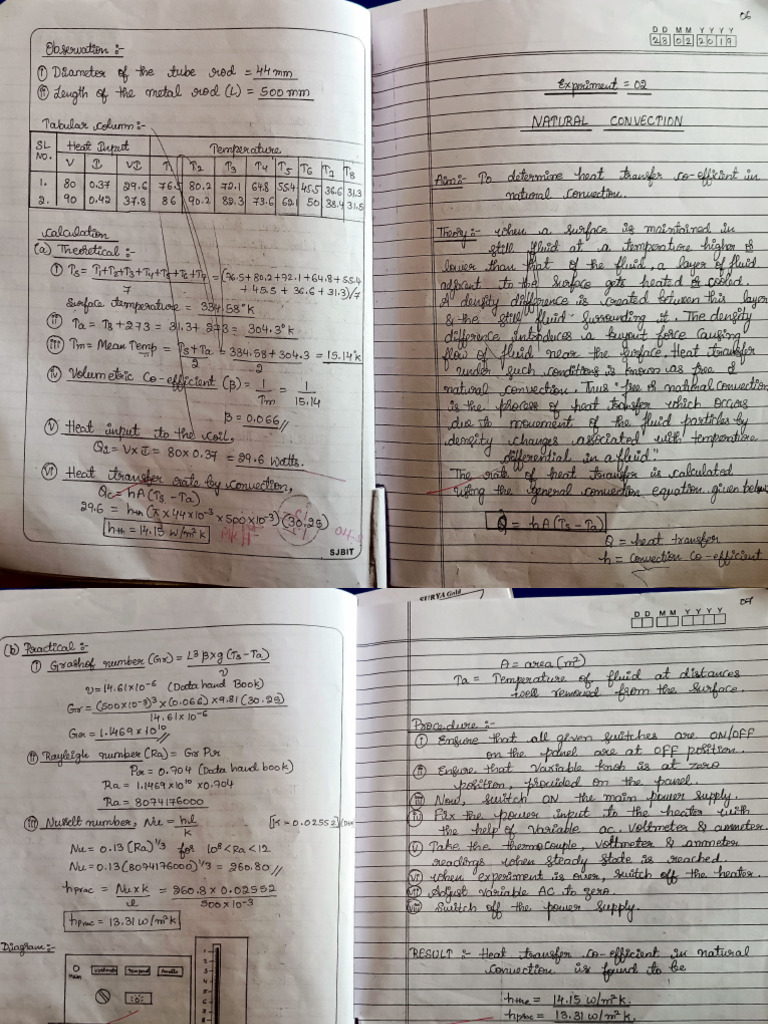 Observation :-
① Diameter of the tube rod = 44 mm
② Length of the metal rod (L) = 500 mm
Tabular column :-
SL NO. Heat Input Temperature
V I VI T1 T2 T3 T4 T5 T6 T7 T8
1. 80 0.37 29.6 76.5 80.2 72.1 64.8 55.4 45.5 36.6 31.3
2. 90 0.42 37.8 86 90.2 82.3 73.6 62.1 50 38.4 31.5
Calculation
(a) Theoretical :-
① Ts = T1+T2+T3+T4+T5+T6+T7 / 7 = (76.5+80.2+72.1+64.8+55.4
+ 45.5 + 36.6 + 31.3)/7
Surface temperature = 334.58°k
② Ta = T8 + 273 = 31.3+ 273 = 304.3°k
③ Tm = Mean Temp = Ts+Ta / 2 = 334.58 + 304.3 / 2 = 15.14°k
④ Volumetric Co-efficient (β) = 1/Tm = 1/15.14
β = 0.066//
⑤ Heat input to the coil,
Q1 = V×I = 80×0.37 = 29.6 Watts.
⑥ Heat transfer rate by convection,
Qc = hA(Ts - Ta)
29.6 = hth (π × 44×10⁻³ × 500×10⁻³) (30.28)
hth = 14.15 W/m²k
SJBIT
06
DD MM YYYY
23 02 2019
Experiment = 02
NATURAL CONVECTION
Aim:- To determine heat transfer co-efficient in
natural convection.
Theory :- when a surface is maintained in
still fluid at a temperature higher or
lower than that of the fluid, a layer of fluid
adjacent to the surface gets heated or cooled.
A density difference is created between this layer
& the still fluid surrounding it. The density
difference introduces a buoyant force causing
flow of fluid near the surface. Heat transfer
under such conditions is known as free or
natural convection. Thus "free or natural convection
is the process of heat transfer which occurs
due to movement of the fluid particles by
density changes associated with temperature
differential in a fluid."
The rate of heat transfer is calculated
using the general convection equation given below
Q = hA(Ts - Ta)
Q = heat transfer
h = Convection Co-efficient
(b) Practical :-
① Grashof number (Gr) = L³ β×g (Ts - Ta) / υ
υ = 14.61×10⁻⁶ (Data hand Book)
Gr = (500×10⁻³)³ × (0.066) × 9.81 (30.28) / 14.61 × 10⁻⁶
Gr = 1.1469×10¹⁰ //
② Rayleigh number (Ra) = Gr Pr
Pr = 0.704 (Data hand book)
Ra = 1.1469×10¹⁰ ×0.704
Ra = 8074176000
③ Nuselt number, Nu = hl/k [K = 0.02552]
Nu = 0.13 (Ra)^1/3 for 10⁸ < Ra < 12
Nu = 0.13 (8074176000)^1/3 = 260.80 //
hprac = Nu×k / l = 260.8 × 0.02552 / 500×10⁻³
hprac = 13.31 w/m²k
Diagram :-
SURYA Gold
07
DD MM YYYY
A = area (m²)
Ta = Temperature of fluid at distances
well removed from the surface.
Procedure :-
① Ensure that all given switches are ON/OFF
on the panel are at OFF position.
② Ensure that Variable knob is at zero
position, provided on the panel.
③ Now, switch ON the main power supply.
④ Fix the power input to the heater with
the help of Variable ac. Voltmeter & ammeter.
⑤ Take the thermocouple, voltmeter & ammeter
readings when steady state is reached.
⑥ When experiment is over, switch off the heater.
⑦ Adjust variable AC to zero.
⑧ Switch off the power supply.
RESULT :- Heat transfer co-efficient in natural
convection is found to be
hthe = 14.15 w/m²k.
hprac = 13.31 w/m²k.